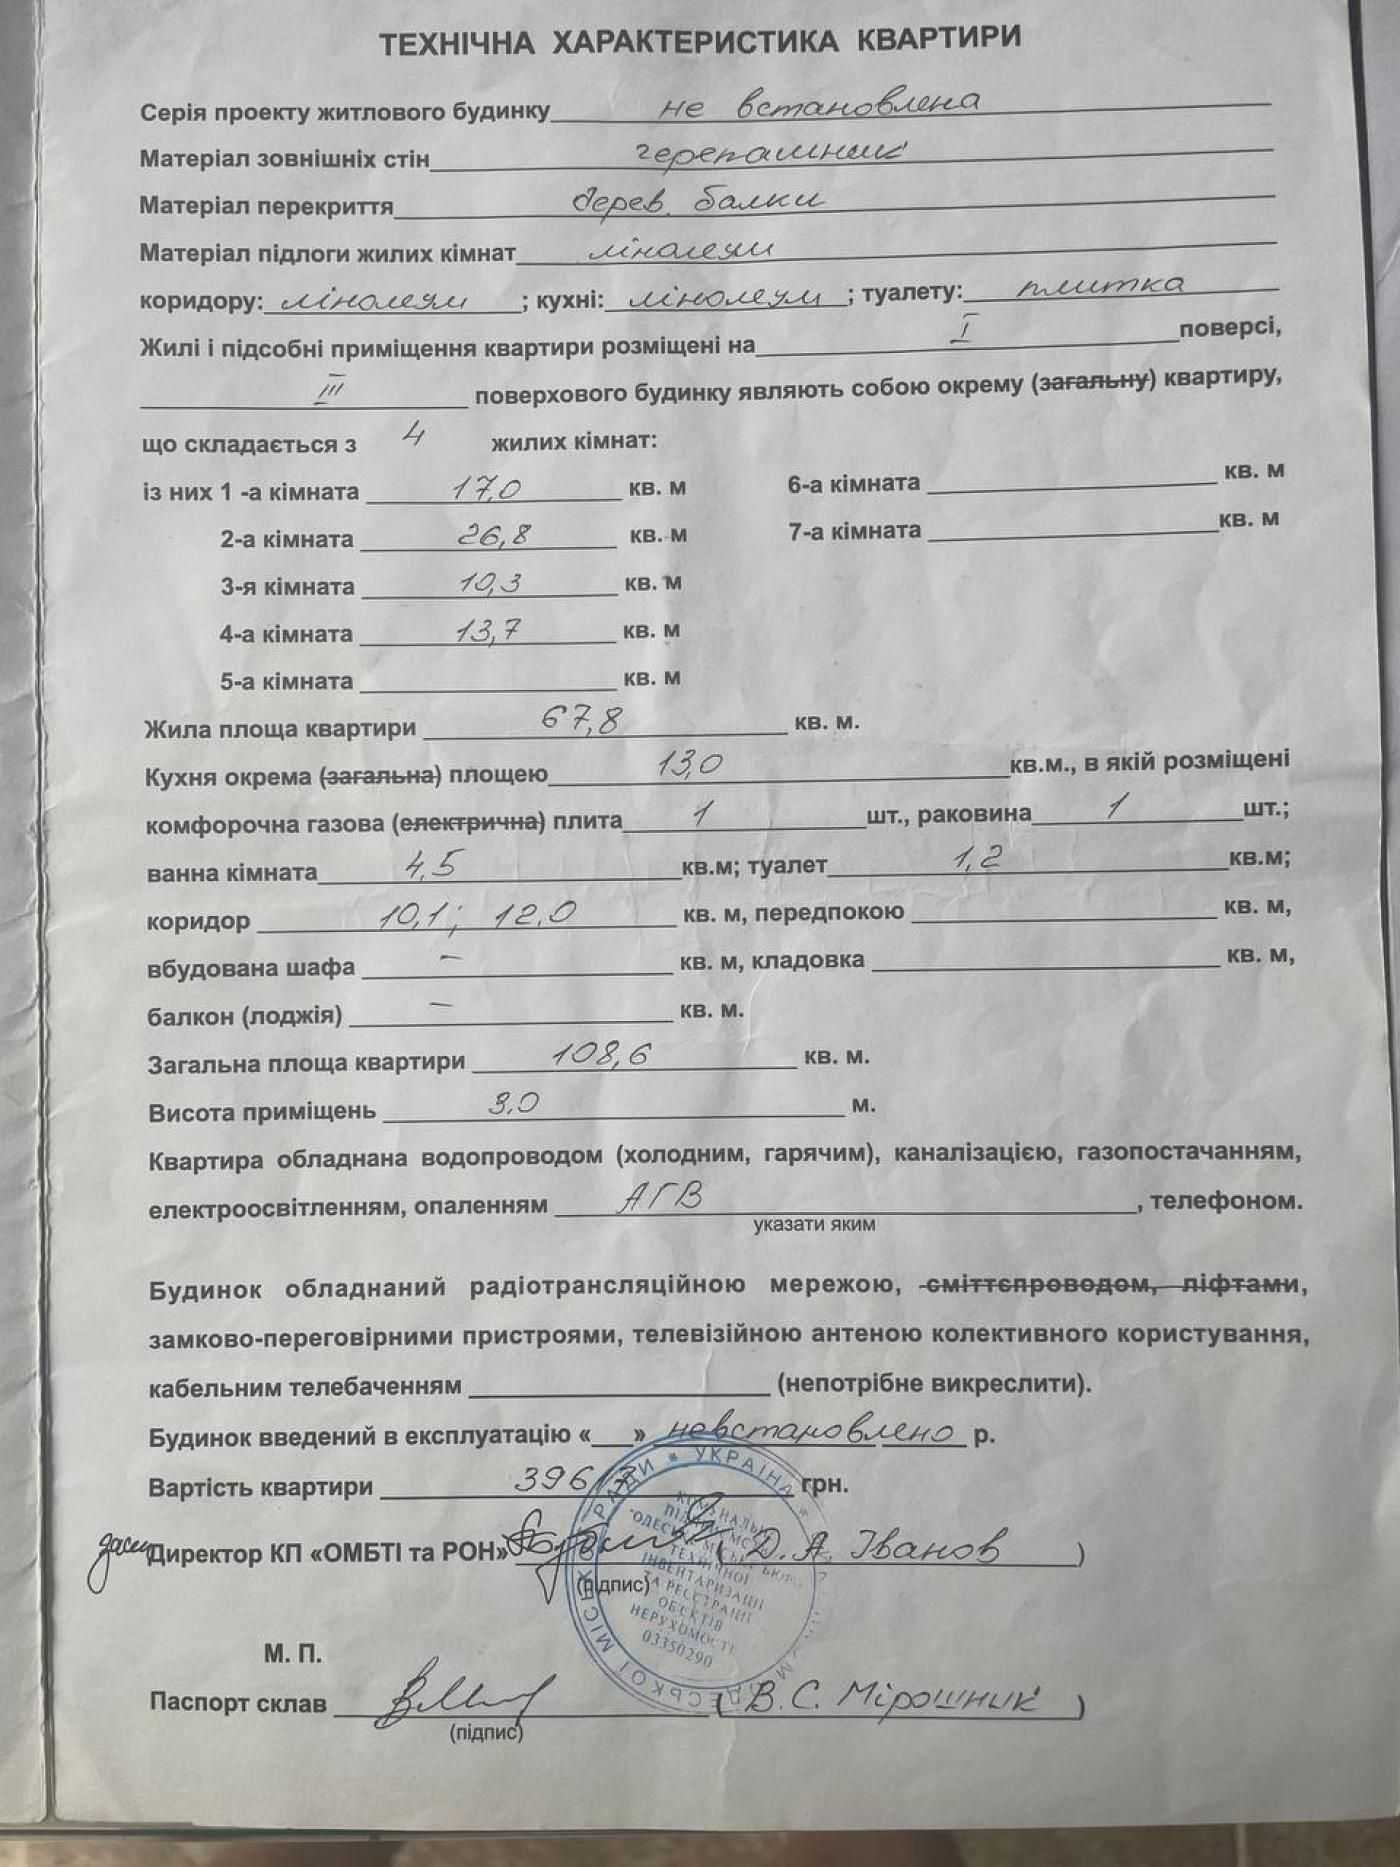 ТЕХНІЧНА ХАРАКТЕРИСТИКА КВАРТИРИ
Серія проекту житлового будинку не встановлена
Матеріал зовнішніх стін черепашник
Матеріал перекриття дерев. балки
Матеріал підлоги жилих кімнат лінолеум
коридору: лінолеум ; кухні: лінолеум ; туалету: плитка
Жилі і підсобні приміщення квартири розміщені на I поверсі,
III поверхового будинку являють собою окрему (загальну) квартиру,
що складається з 4 жилих кімнат:
із них 1 -а кімната 17,0 кв. м 6-а кімната кв. м
2-а кімната 26,8 кв. м 7-а кімната кв. м
3-я кімната 10,3 кв. м
4-а кімната 13,7 кв. м
5-а кімната кв. м
Жила площа квартири 67,8 кв. м.
Кухня окрема (загальна) площею 13,0 кв.м., в якій розміщені
комфорочна газова (електрична) плита 1 шт., раковина 1 шт.;
ванна кімната 4,5 кв.м; туалет 1,2 кв.м;
коридор 10,1; 12,0 кв. м, передпокою кв. м,
вбудована шафа – кв. м, кладовка кв. м,
балкон (лоджія) – кв. м.
Загальна площа квартири 108,6 кв. м.
Висота приміщень 3,0 м.
Квартира обладнана водопроводом (холодним, гарячим), каналізацією, газопостачанням,
електроосвітленням, опаленням АГВ , телефоном.
указати яким
Будинок обладнаний радіотрансляційною мережою, сміттєпроводом, ліфтами,
замково-переговірними пристроями, телевізійною антеною колективного користування,
кабельним телебаченням (непотрібне викреслити).
Будинок введений в експлуатацію «__» невстановлено р.
Вартість квартири 39617 грн.
Директор КП «ОМБТІ та РОН» ( Д. А. Іванов )
(підпис)
УКРАЇНА
КОМУНАЛЬНЕ
ПІДПРИЄМСТВО
"ОДЕСЬКЕ МІСЬКЕ БЮРО
ТЕХНІЧНОЇ
ІНВЕНТАРИЗАЦІЇ
ТА РЕЄСТРАЦІЇ
ОБ'ЄКТІВ
НЕРУХОМОСТІ"
03350290
М. П.
Паспорт склав ( В. С. Мірошник )
(підпис)